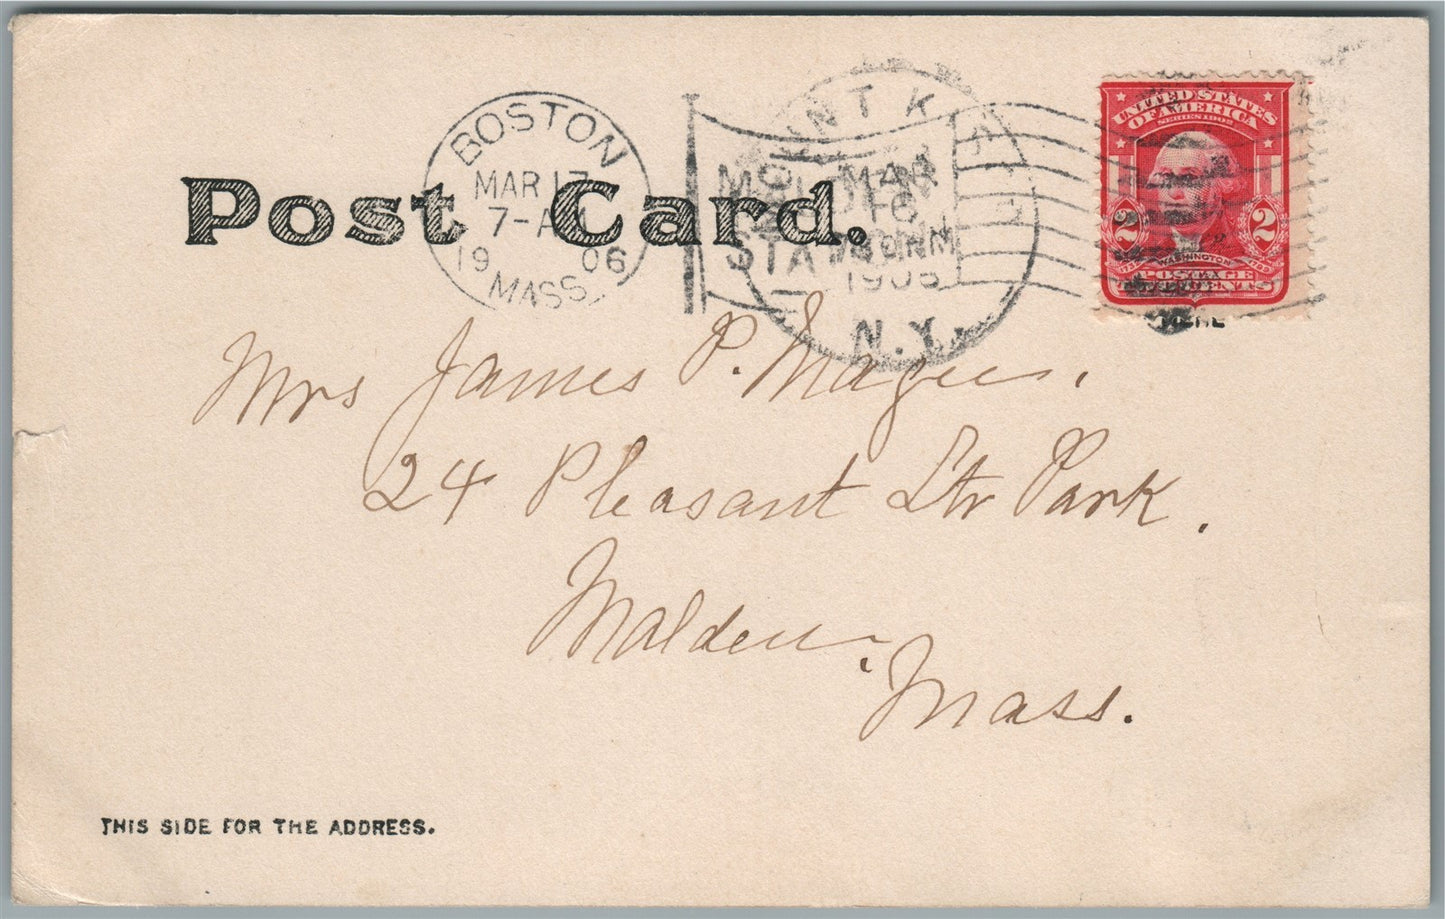 Post Card.
BOSTON
MAR 17
7-AM
19 06
MASS.
MALDEN
STATION
MOUNT KISCO
MAR
16
1906
N.Y.
UNITED STATES
OF AMERICA
SERIES 1902
2 2
WASHINGTON
POSTAGE
CENTS
Mrs James P. Magee.
24 Pleasant Str Park.
Malden.
Mass.
THIS SIDE FOR THE ADDRESS.